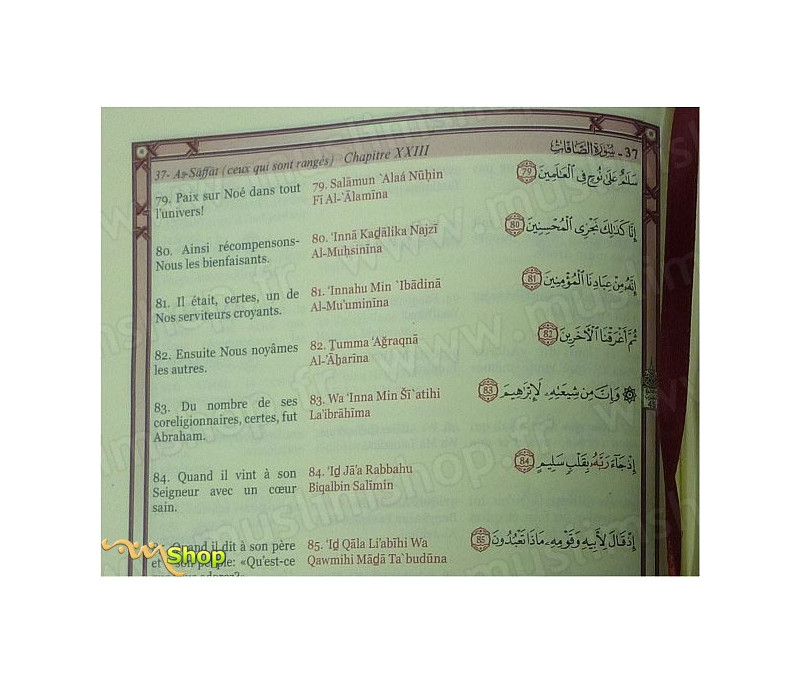 37- Aṣ-Ṣāffāt (ceux qui sont rangés) Chapitre XXIII
37 - سُورَةُ الصَّافَّاتِ
79. Paix sur Noé dans tout
l'univers!
79. Salāmun `Alaá Nūḥin
Fī Al-`Ālamīna
سَلَٰمٌ عَلَىٰ نُوحٍ فِى ٱلْعَٰلَمِينَ 79
80. Ainsi récompensons-
Nous les bienfaisants.
80. 'Innā Kaḏālika Najzī
Al-Muḥsinīna
إِنَّا كَذَٰلِكَ نَجْزِى ٱلْمُحْسِنِينَ 80
81. Il était, certes, un de
Nos serviteurs croyants.
81. 'Innahu Min `Ibādinā
Al-Mu'uminīna
إِنَّهُۥ مِنْ عِبَادِنَا ٱلْمُؤْمِنِينَ 81
82. Ensuite Nous noyâmes
les autres.
82. Ṯumma 'Aġraqnā
Al-'Āḫarīna
ثُمَّ أَغْرَقْنَا ٱلْءَاخَرِينَ 82
83. Du nombre de ses
coreligionnaires, certes, fut
Abraham.
83. Wa 'Inna Min Šī`atihi
La'ibrāhīma
۞ وَإِنَّ مِن شِيعَتِهِۦ لَإِبْرَٰهِيمَ 83
84. Quand il vint à son
Seigneur avec un cœur
sain.
84. 'Iḏ Jā'a Rabbahu
Biqalbin Salīmin
إِذْ جَآءَ رَبَّهُۥ بِقَلْبٍ سَلِيمٍ 84
Quand il dit à son père
et son peuple: «Qu'est-ce
85. 'Iḏ Qāla Li'abīhi Wa
Qawmihi Māḏā Ta`budūna
إِذْ قَالَ لِأَبِيهِ وَقَوْمِهِۦ مَاذَا تَعْبُدُونَ 85
Shop
www.muslimshop.fr